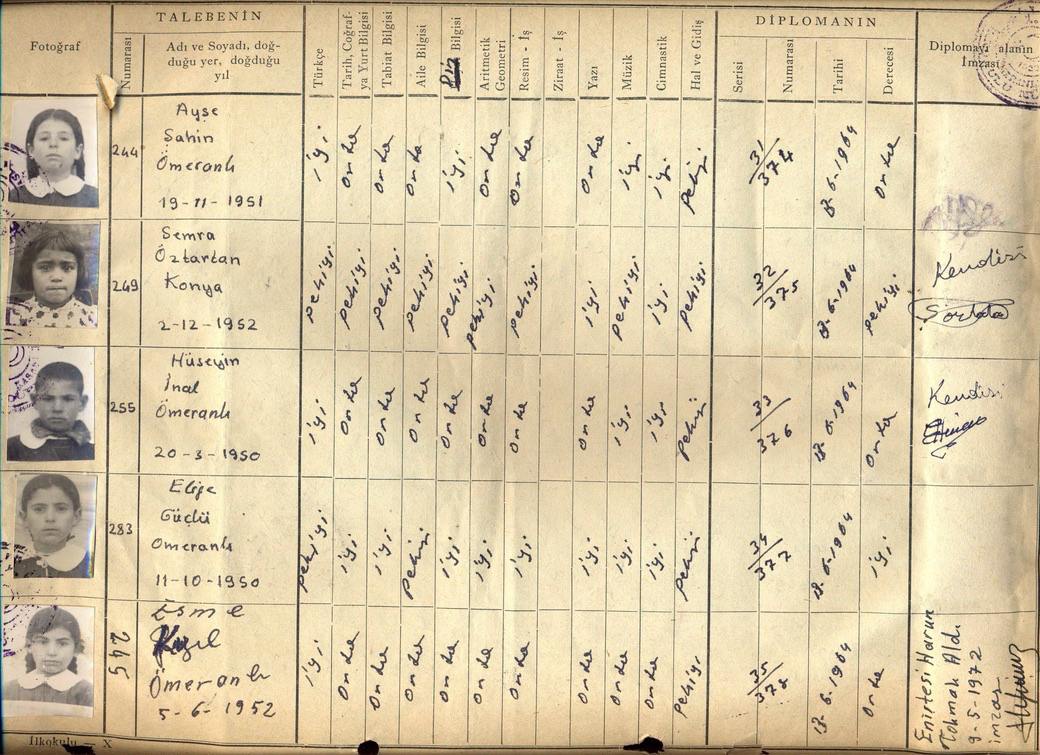 TALEBENİN
DİPLOMANIN
Fotoğraf
Numarası
Adı ve Soyadı, doğ-
duğu yer, doğduğu
yıl
Türkçe
Tarih, Coğraf-
ya Yurt Bilgisi
Tabiat Bilgisi
Aile Bilgisi
Bilgisi
Aritmetik
Geometri
Resim - İş
Ziraat - İş
Yazı
Müzik
Cimnastik
Hal ve Gidiş
Serisi
Numarası
Tarihi
Derecesi
Diplomayı alanın
İmzası
244
Ayşe
Şahin
Ömeranlı
19-11-1951
iyi
Orta
Orta
Orta
iyi
Orta
Orta
Orta
iyi
iyi
Pekiyi
31/374
18-6-1964
Orta
249
Semra
Öztartan
Konya
2-12-1952
Pekiyi
Pekiyi
Pekiyi
Pekiyi
Pekiyi
Pekiyi
Pekiyi
iyi
Pekiyi
iyi
Pekiyi
32/375
18-6-1964
Pekiyi
Kendisi
255
Hüseyin
İnal
Ömeranlı
20-3-1950
iyi
Orta
Orta
Orta
Orta
Orta
Orta
Orta
iyi
iyi
Pekiyi
33/376
18-6-1964
Orta
Kendisi
283
Elife
Güçlü
Omeranlı
11-10-1950
Pekiyi
iyi
iyi
Pekiyi
iyi
iyi
iyi
iyi
iyi
iyi
Pekiyi
34/377
18-6-1964
iyi
245
Esme
Kızıl
Ömeranlı
5-6-1952
iyi
Orta
Orta
Orta
Orta
Orta
Orta
Orta
Orta
Orta
Pekiyi
35/378
18-6-1964
Orta
Eniştesi Harun
Tokmak Aldı
9-5-1972
imzas
İlkokulu — X